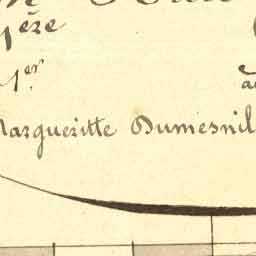 1ère
1er
Margueritte Dumesnil